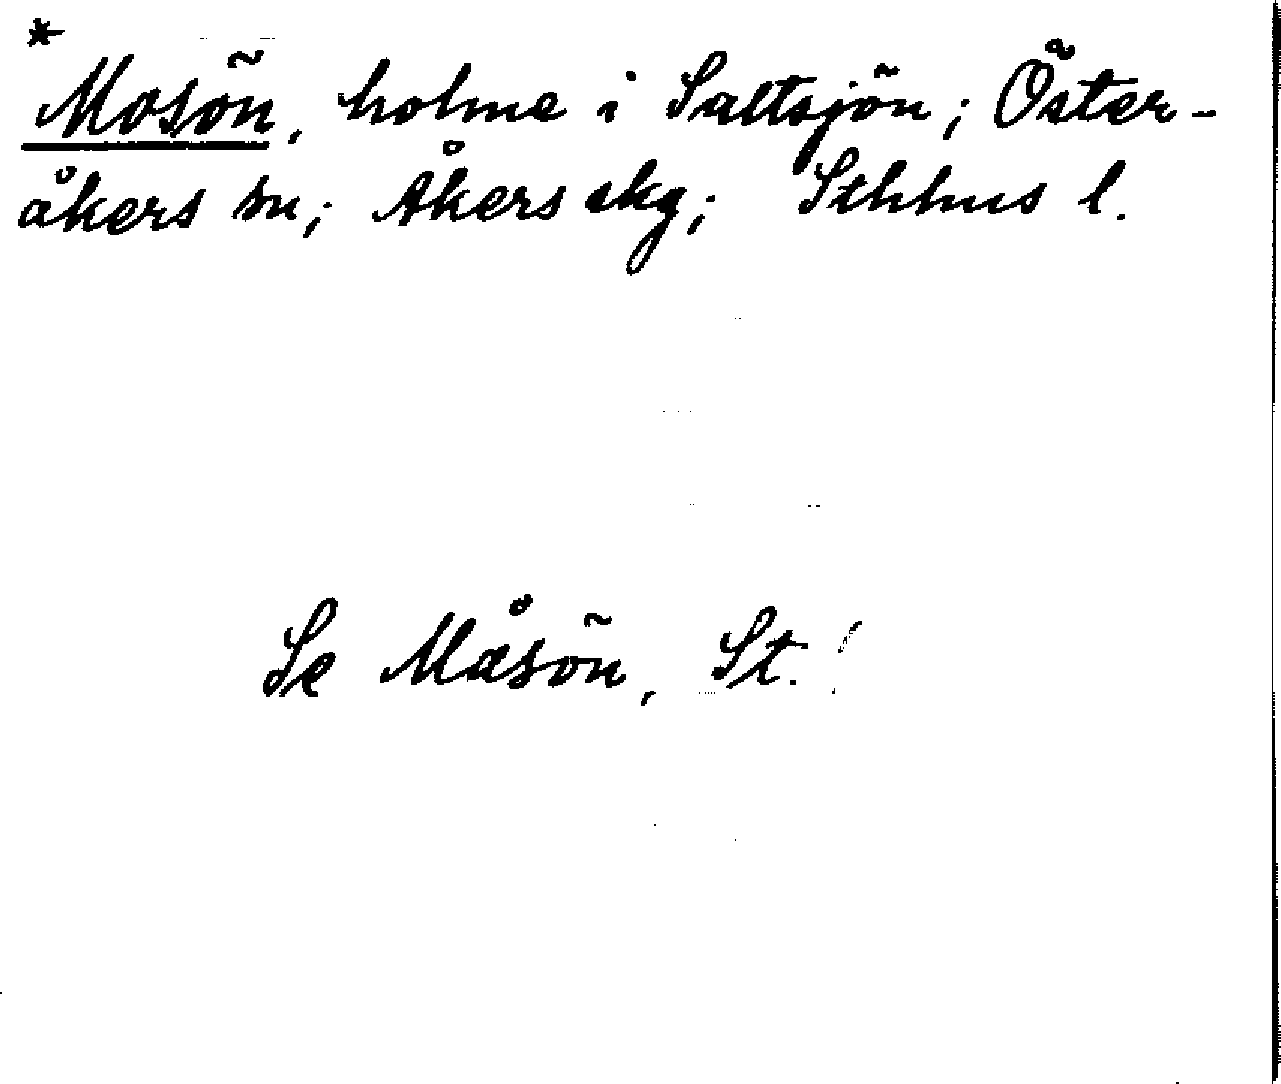 *
Mosön, holme i Saltsjön; Öster-
åkers sn; Åkers skg; Sthhus l.
Se Måsön, St.!